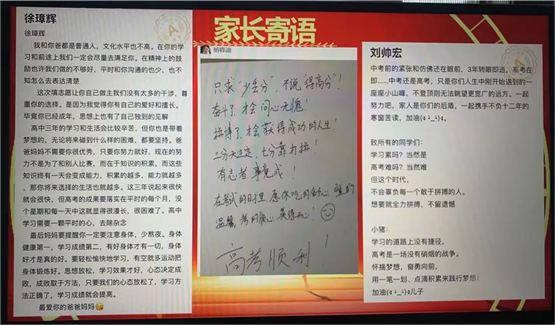 家长寄语
徐璋辉
徐璋辉
我和你爸都是普通人，文化水平也不高，在你的学
习和前途上我们一定会尽量去满足你。在精神上的鼓
励也许我们做的不够好，平时和你沟通的也少、也不
知怎么去表达清楚
这次填志愿让你自己做主我们没有太多的干涉，尊
重你的选择。是因为我觉得你有自己的爱好和擅长。
毕竟你已经成年，思想上也有了自己独到的见解
高中三年的学习和生活会比较辛苦，但你也是带着
梦想的，无论将来碰到什么样的困难，都要坚持。爸
爸妈妈不需要你很优秀，只要你努力就好，现在的努
力不是为了和别人比赛。而在于知识的积累，而这些
知识终有一天会变成能力，积累的越多，能力就越多
，那你将来选择的生活也就越多。这三年说起来很快
就会很快，但高考的成果要落实在平时的每个月，没
个星期和每一天中这就显得很漫长，很困难了。高中
学习需要一颗平时的心，去除杂念
最后妈妈要提醒你一定要注意身体，少熬夜。身体
健康第一，学习成绩第二，有好身体才有一切，身体
好才是真的好。要轻松愉快地学习，有空就多运动把
身体锻炼好。思想放松，学习效果才好，心态决定成
败，成败取于方法，只要我们的心态放松了，学习方
法正确了，学习成绩就会提高。
最爱你的爸爸妈妈
只求“少丢分”，不说“得高分”！
奋斗了，才会问心无愧！
拼搏了，才会获得成功的人生！
三分天注定，七分靠打拼！
有志者，事竟成！
在考试的日子里，愿你吃的舒心，睡的
温馨，考的顺心，赢得开心！
高考顺利！
刘帅宏
中考前的紧张和仿佛还在眼前，3年转眼即逝，高考在
即……中考还是高考，只是你们人生中刚开始遇到的一
座座小山峰，不登顶则无法眺望更宽广的远方。一起
努力吧，家人是你们的后盾，一起携手不负十二年的
寒窗苦读，加油
致所有的同学们：
学习累吗？当然是
高考难吗？当然难
但这个时代，
不会辜负每一个敢于拼搏的人。
想要就全力拼搏，不留遗憾
小猪：
学习的道路上没有捷径，
高考是一场没有硝烟的战争。
怀揣梦想，奋勇向前，
用一笔一划，点滴积累来践行梦想！
加油儿子